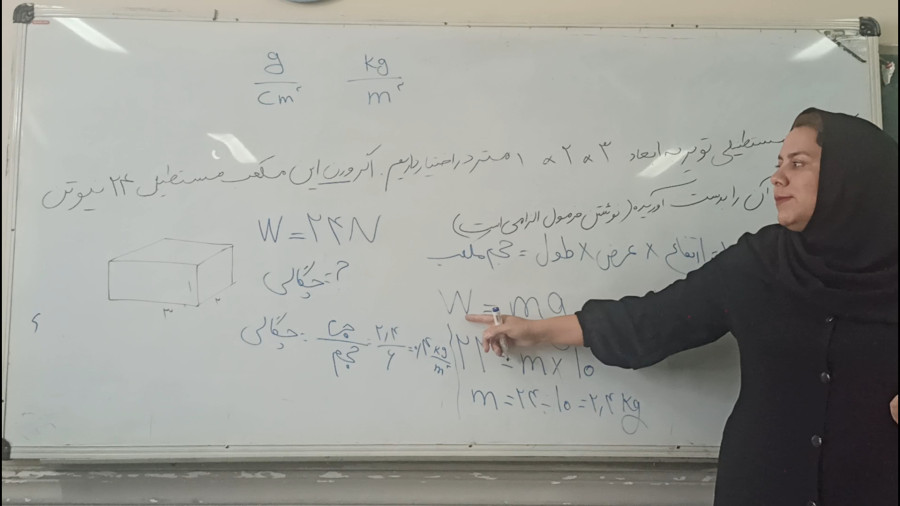 g/cm³ kg/m³
مستطیلی توپر به ابعاد ۳ × ۲ × ۱ متر در اختیار داریم. اگر وزن این مکعب مستطیل ۲۴ نیوتن
آن را بدست آورید (نوشتن فرمول الزامی است)
ارتفاع × عرض × طول = حجم مکعب
W = ۲۴N
چگالی = ?
۱
۲
۳
W = mg
۲۴ = m × ۱۰
m = ۲۴ ÷ ۱۰ = ۲,۴ kg
چگالی = جرم/حجم = ۲,۴/۶ = ۰/۴ kg/m³